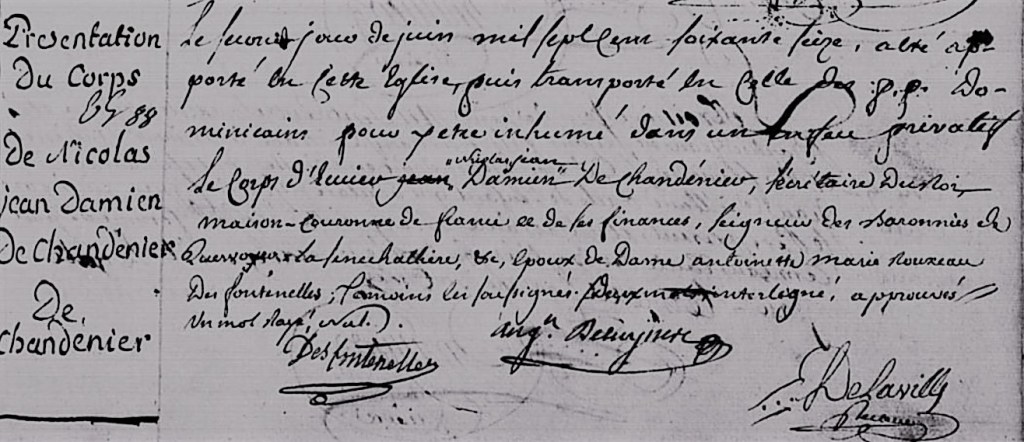 Presentation
Du Corps
De Nicolas
jean Damien
De Chandènier
De,
chandènier
Le second jour de juin mil sept Cent soixante seize, a été ap-
porté En Cette Eglise, puis transporté En Celle des p.p. Do-
minicains pour y etre inhumé dans un privatif
Nicolas jean
Le Corps d'Ecuier jean Damien De Chandénier, sécrétaire Du Roi,
maison-Couronne de france et de ses finances, seigneur des Baronnies de
La senechathère, &c, Epoux de Dame antoinette marie Rouzeau
Des fontenelles; témoins les soussignés. interligné, approuvés
Un mot rayé, nul.
Desfontenelles
DeLaville